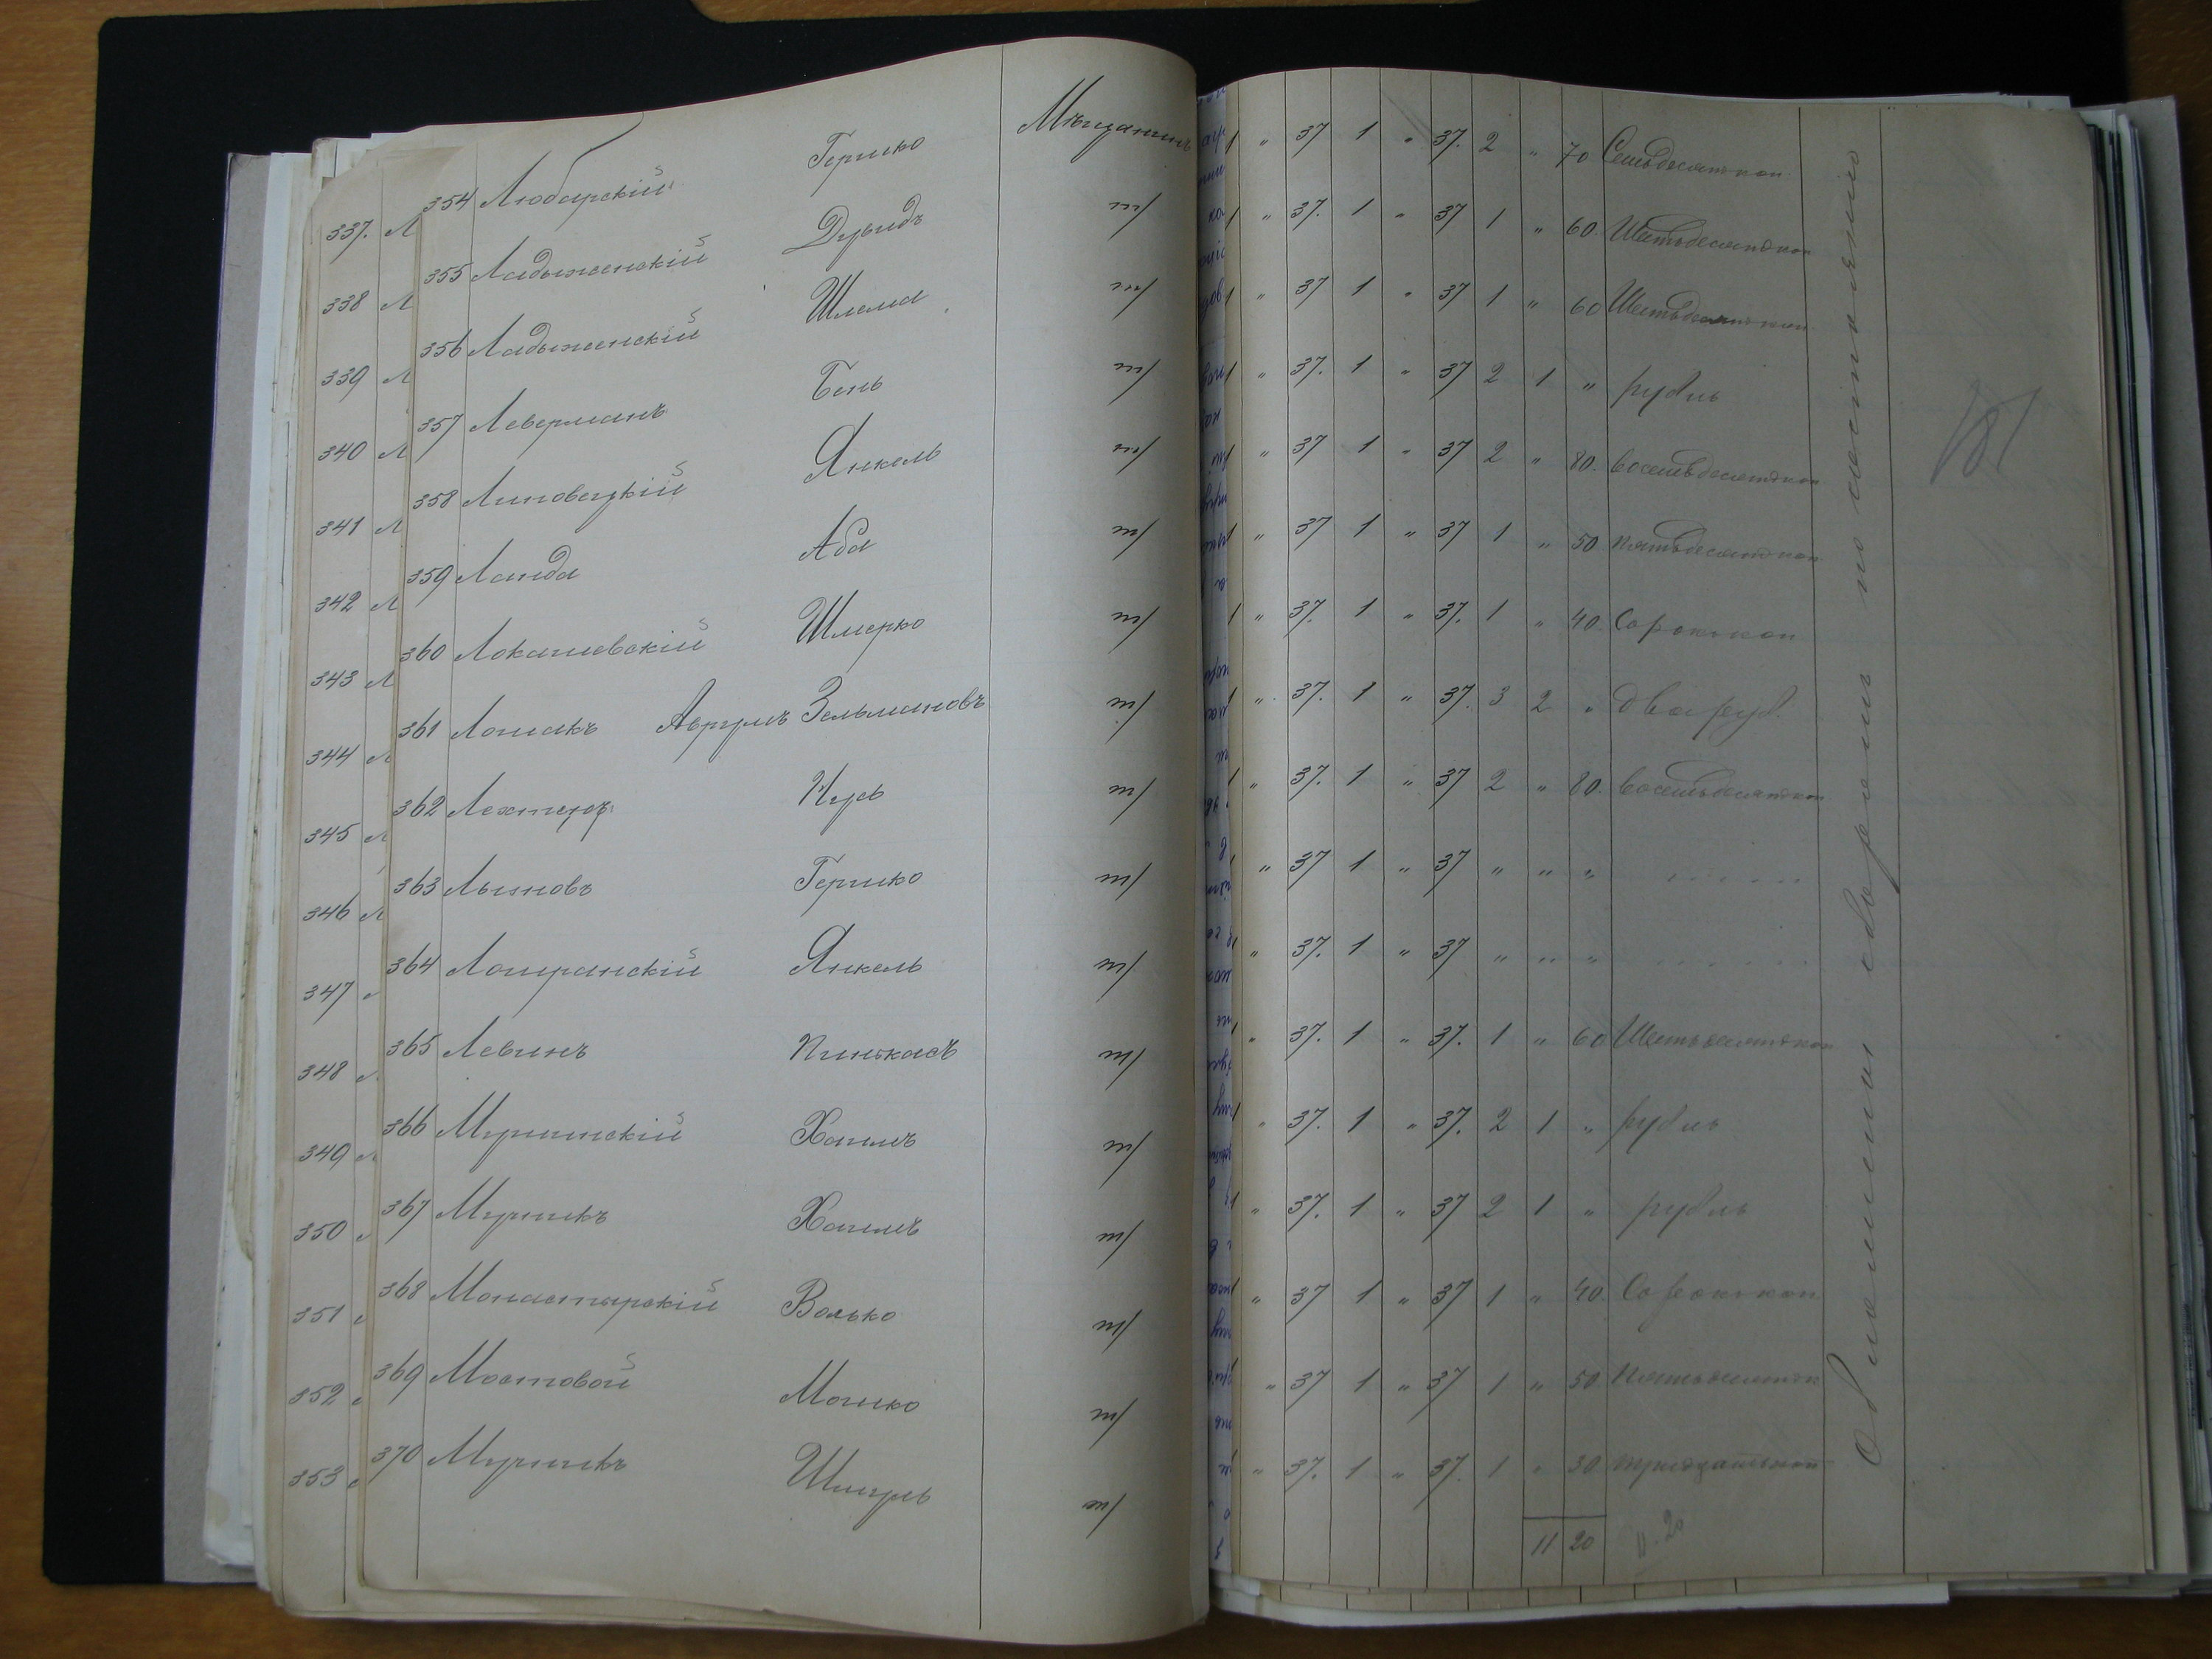 354 Любарскій Гершко Мѣщанинъ
355 Ладыженскій Дувидъ тс
356 Ладыженскій Шлема тс
357 Леверманъ Бень тс
358 Липовецкій Янкель тс
359 Ланда Аба тс
360 Локашевскій Шмерко тс
361 Лошакъ Аврумъ Зельмановъ тс
362 Лехтеръ Нусь тс
363 Лысновъ Гершко тс
364 Лощинскій Янкель тс
365 Левинъ Пинькасъ тс
366 Мучинскій Хаимъ тс
367 Мучникъ Хаимъ тс
368 Монастырскій Волько тс
369 Мостовой Мошко тс
370 Мучникъ Шмуль тс
337. Л
338 Л
339 Л
340 Л
341 Л
342 Л
343 Л
344 Л
345 Л
346 Л
347
348
349
350
351
352
353
1 " 37 1 " 37. 2 " 70 Семьдесятъ коп
1 " 37. 1 " 37 1 " 60. Шестьдесятъ коп
1 " 37 1 " 37 1 " 60 Шестьдесятъ коп
1 " 37. 1 " 37 2 1 " рубль
1 " 37 1 " 37 2 " 80. восемьдесятъ коп
1 " 37 1 " 37 1 " 50 пятьдесятъ коп
1 " 37. 1 " 37. 1 " 40. Сорокъ коп
1 " 37. 1 " 37. 3 2 " два руб.
1 " 37. 1 " 37 2 " 80. восемьдесятъ коп
1 " 37 1 " 37 " " "
" 37. 1 " 37 " " "
" 37. 1 " 37. 1 " 60 Шестьдесятъ коп
" 37. 1 " 37. 2 1 " рубль
" 37. 1 " 37 2 1 " рубль
" 37 1 " 37 1 " 40. Сорокъ коп
" 37 1 " 37 1 " 50 пятьдесятъ к
" 37. 1 " 37. 1 " 30 тридцать коп
11 20 11.20
181